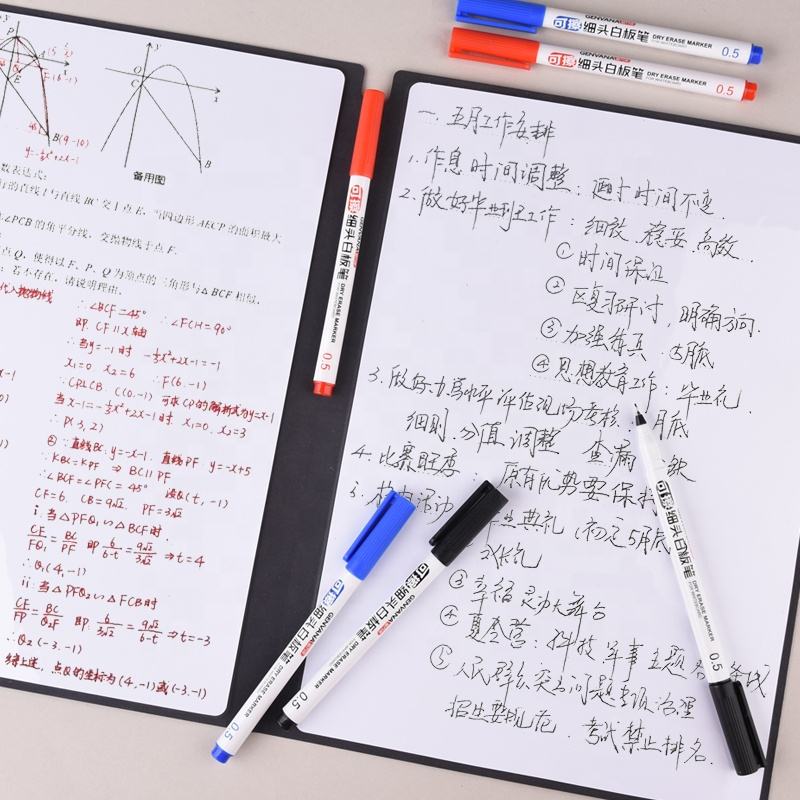 y
P
A(5, 2/3)
x
E
F(6-1)
B(9-10)
y=-⅓x²+2x-1
y
O
C
x
B
备用图
数表达式;
行的直线 l 与直线 BC 交于点 E, 当四边形 AECP 的面积最大
∠PCB 的角平分线, 交抛物线于点 F.
点 Q, 使得以 F、P、Q 为顶点的三角形与△BCF 相似,
; 若不存在, 请说明理由.
代入抛物线
∴∠BCF=45° ∴∠FCH=90°
即 CF∥x轴
∴当y=-1时 -⅓x²+2x-1=-1
x₁=0 x₂=6 ∴F(6,-1)
∵CP⊥CB C(0,-1) 可求CP的解析式为y=x-1
当x-1=-⅓x²+2x-1时 x₁=0. x₂=3
∴P(3, 2)
② ∵直线BC: y=-x-1. 直线PF: y=-x+5
∴KBC=KPF ⇒ BC∥PF
∴∠BCF=∠PFC=45° 设Q(t, -1)
CF=6. CB=9√2. PF=3√2
i. 当△PFQ₁∽△BCF时.
CF/FQ₁=BC/PF 即 6/6-t=9√2/3√2 ⇒t=4
∴Q₁(4,-1)
ii: 当△PFQ₂∽△FCB时
CF/FP=BC/Q₂F 即: 6/3√2=9√2/6-t ⇒t=-3
∴Q₂(-3.-1)
综上述, 点Q的坐标为(4,-1)或(-3.-1)
GENVANA
可擦细头白板笔
DRY ERASE MARKER
FOR WHITEBOARD
0.5
GENVANA
可擦细头白板笔
DRY ERASE MARKER
FOR WHITEBOARD
0.5
GENVANA
可擦细头白板笔
DRY ERASE MARKER
FOR WHITEBOARD
0.5
一. 五月工作安排
1. 作息时间调整: 时间不变.
2. 做好毕业班工作: 细致 稳妥 高效.
① 时间保证
② 区复习研讨, 明确方向.
③ 加强仿真 5月底
④ 思想教育工作: 毕业礼.
3. 做好办学水平评估现场 月底
细则. 分值 调整 查漏 缺
4. 比赛 : 原有优势要保持
5. 活动 业典礼 (初定5月底
③ 幸福 大舞台
④ 夏令营: 科技 军事 主题
⑤ 人民群众 问题专项治理
招生要规范. 考试禁止排名.
可擦细头白板笔
GENVANA
DRY ERASE MARKER
0.5
可擦细头白板笔
GENVANA
DRY ERASE MARKER
0.5
可擦细头白板笔
GENVANA
DRY ERASE MARKER
FOR WHITEBOARD
0.5